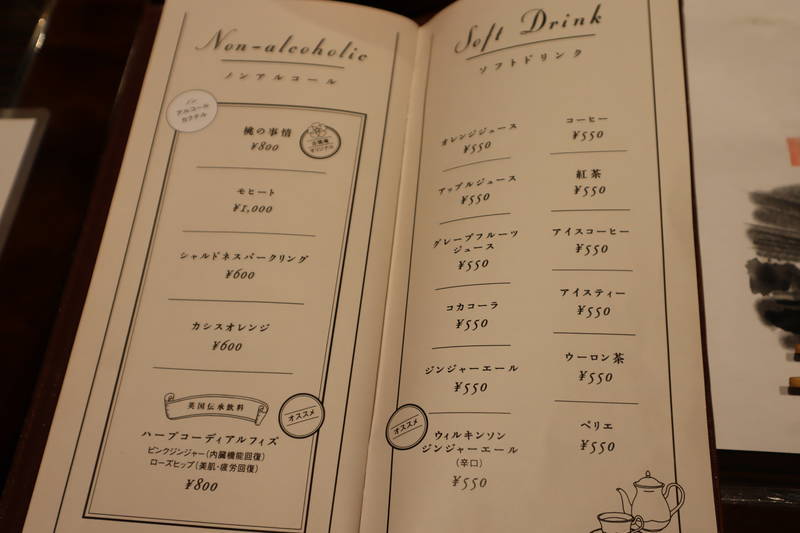 Non-alcoholic
ノンアルコール
ノン
アルコール
カクテル
桃の事情
¥800
オリジナル
モヒート
¥1,000
シャルドネスパークリング
¥600
カシスオレンジ
¥600
英国伝承飲料
オススメ
ハーブコーディアルフィズ
ピンクジンジャー(内臓機能回復)
ローズヒップ(美肌・疲労回復)
¥800
Soft Drink
ソフトドリンク
オレンジジュース
¥550
アップルジュース
¥550
グレープフルーツ
ジュース
¥550
コカコーラ
¥550
ジンジャーエール
¥550
オススメ
ウィルキンソン
ジンジャーエール
(辛口)
¥550
コーヒー
¥550
紅茶
¥550
アイスコーヒー
¥550
アイスティー
¥550
ウーロン茶
¥550
ペリエ
¥550